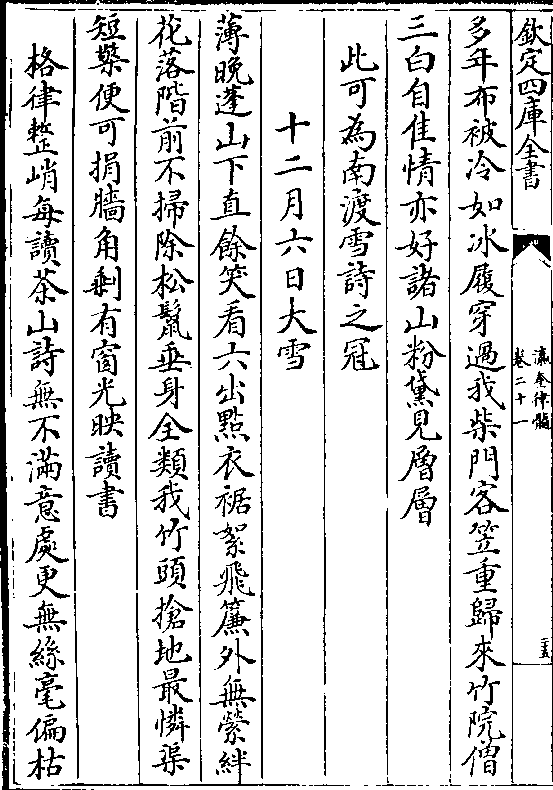 欽定四庫全書
瀛奎律髓
卷二十一
二五
多年布被冷如冰履穿過我柴門客笠重歸來竹院僧
三白自佳情亦好諸山粉黛見層層
此可為南渡雪詩之冠
十二月六日大雪
薄晚蓬山下直餘笑看六出點衣裾絮飛簾外無縈絆
花落階前不掃除松鬣垂身全類我竹頭搶地最憐渠
短檠便可捐牆角剰有窗光映讀書
格律整峭每讀茶山詩無不滿意處更無絲毫偏枯